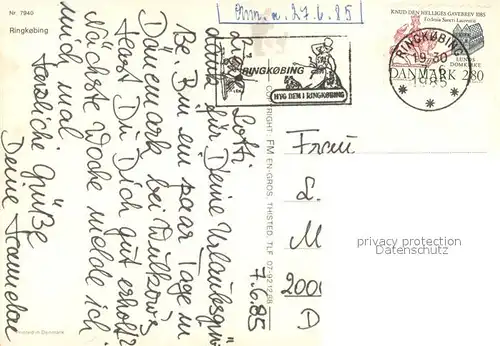 Nr. 7940
Ringkøbing
Ank. a. 27.6.85
KNUD DEN HELLIGES GAVEBREV 1085
Ecclesia Sancti Laurentii
LUNDS
DOMKIRKE
DANMARK 280
RINGKØBING
19.30
1985
RINGKØBING
HYG DEM I RINGKØBING
7.6.85
Liebe Lotti
dank für Deine Urlaubsgrü
Be. Bin ein paar Tage in
Dänemark bei Wulkow's
Hast Du Dich gut erholt?
Nächste Woche melde ich
mich mal
Herzliche Grüße
Deine Hannelore
COPYRIGHT: FM EN-GROS, THISTED. TLF. 07-921268
Frau
L.
M
2000
D
Printed in Denmark
privacy protection
watermark